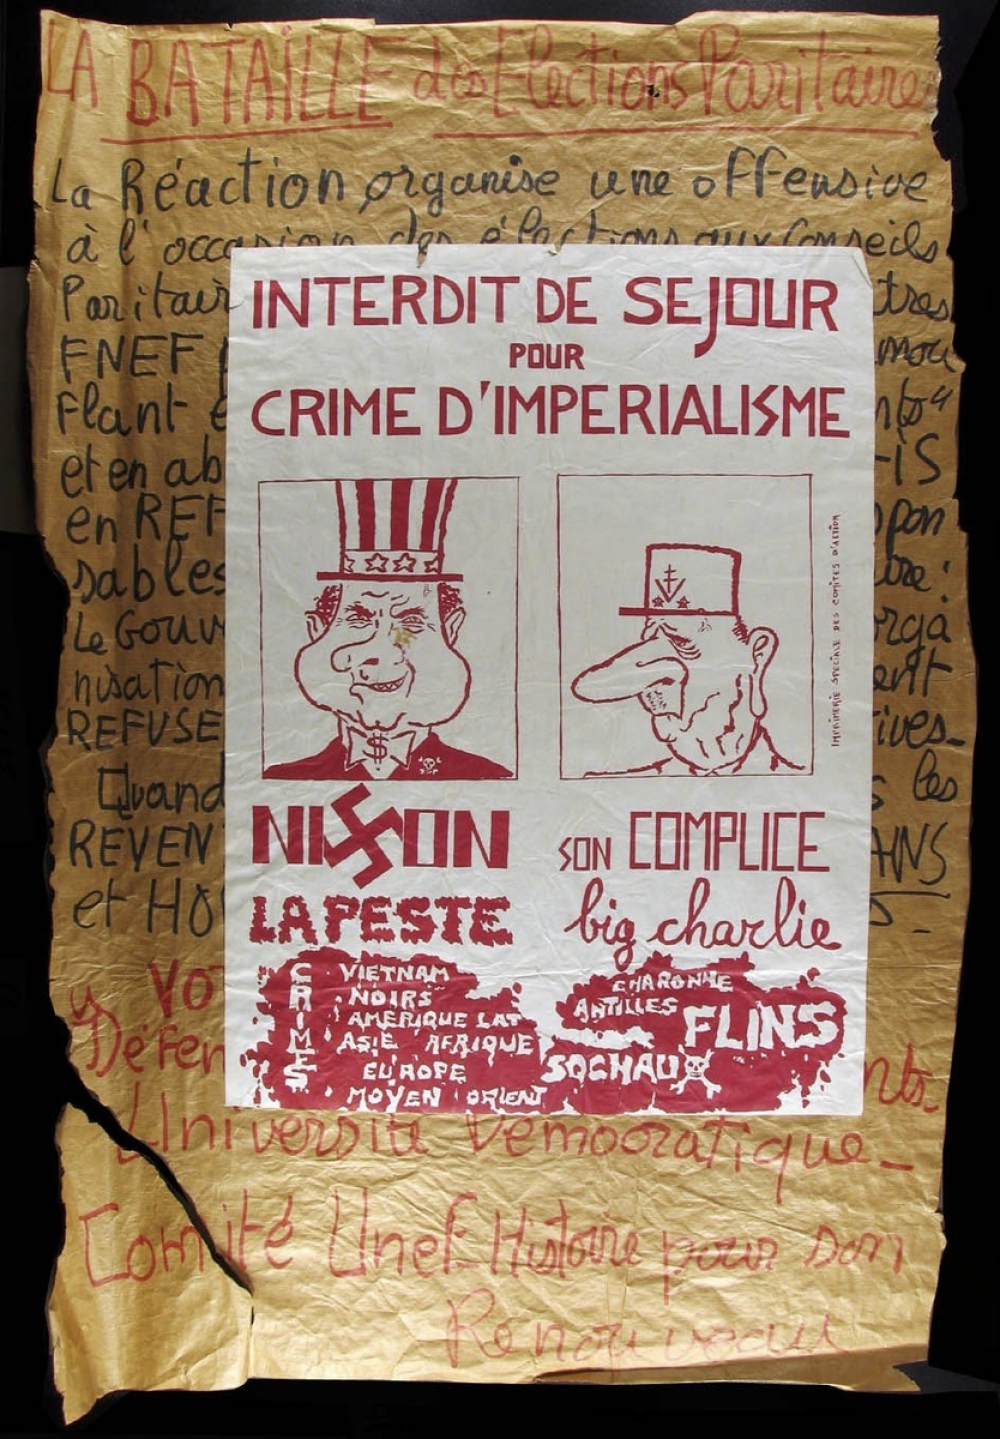 LA BATAILLE des Elections Paritaire
La Réaction organise une offensive
à l'occasion des élections aux Conseils
Paritair
tres
FNEF
mou
Flant
nts"
et en ab
en REF
pon
sables
Le Gouv
orga
nisation
ent
REFUSE
ives-
Quand
les
REVEN
ANS
et HO
Vo
Défen
nts-
Université Democratique-
Comité Unef Histoire pour son
Renouveau
INTERDIT DE SEJOUR
POUR
CRIME D'IMPERIALISME
IMPRIMERIE SPECIALE DES COMITES D'ACTION
$
NI卐ON
LA PESTE
SON COMPLICE
big charlie
CRIMES
VIETNAM
NOIRS
AMERIQUE LAT
ASIE AFRIQUE
EUROPE
MOYEN ORIENT
CHARONNE
ANTILLES
FLINS
SOCHAUX